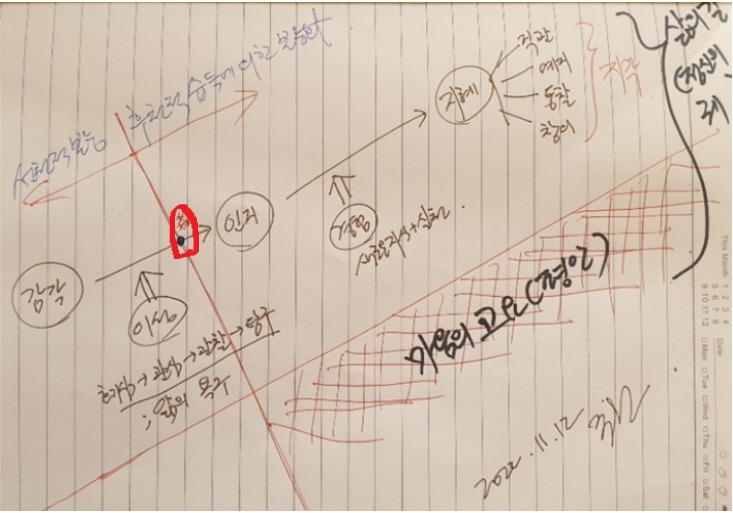 후천적 습득에 의한 방향
선천적 본능
감각
이성
호기심→관심→관찰→탐구
; 앎의 욕구
인지
경험
새로운지식+실천
지혜
직관
예지
통찰
창의
지각
삶의 길
(정신의
마음의 고요 (평안)
2020.11.21
This Month 1 2 3 4
5 6 7 8
9 10 11 12
Date
□Mon □Tue □Wed □Thu □Fri □Sat